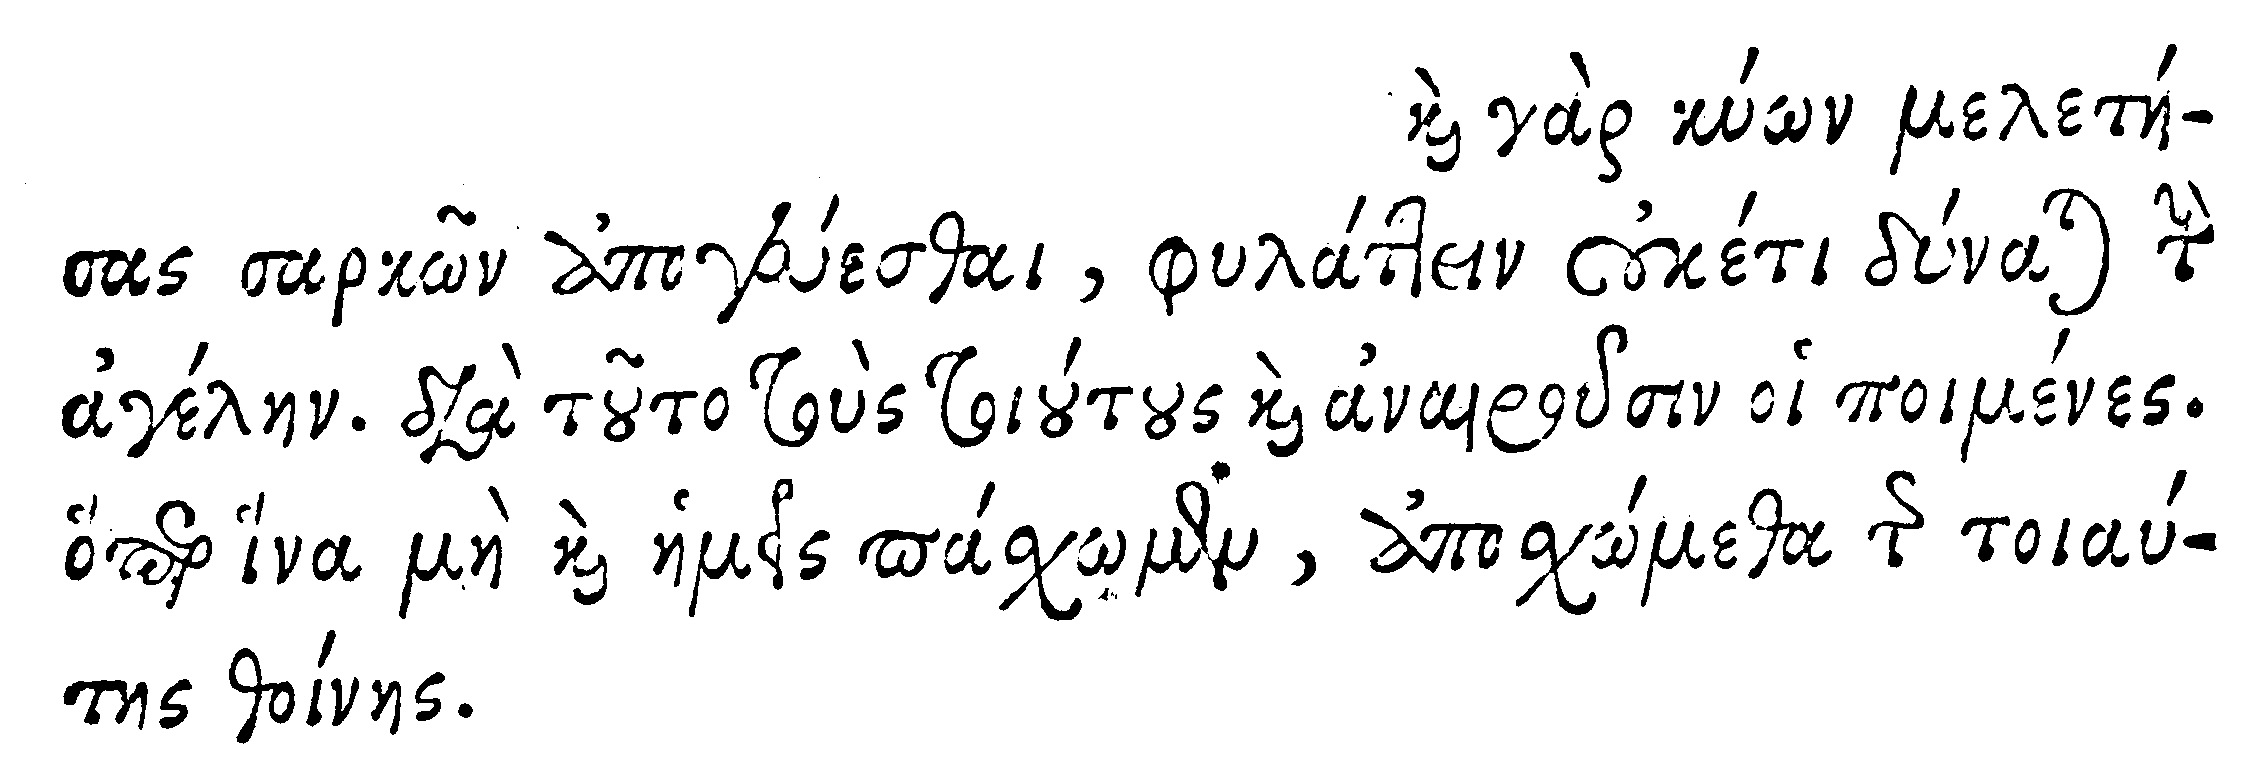 καὶ γὰρ κύων μελετή-
σας σαρκῶν ἀπογεύεσθαι, φυλάττειν οὐκέτι δύναται τὴν
ἀγέλην. διὰ τοῦτο τοὺς τοιούτους καὶ ἀναιροῦσιν οἱ ποιμένες.
ὅπερ ἵνα μὴ καὶ ἡμεῖς πάσχωμεν, ἀποσχώμεθα τῆς τοιαύ-
της θοίνης.